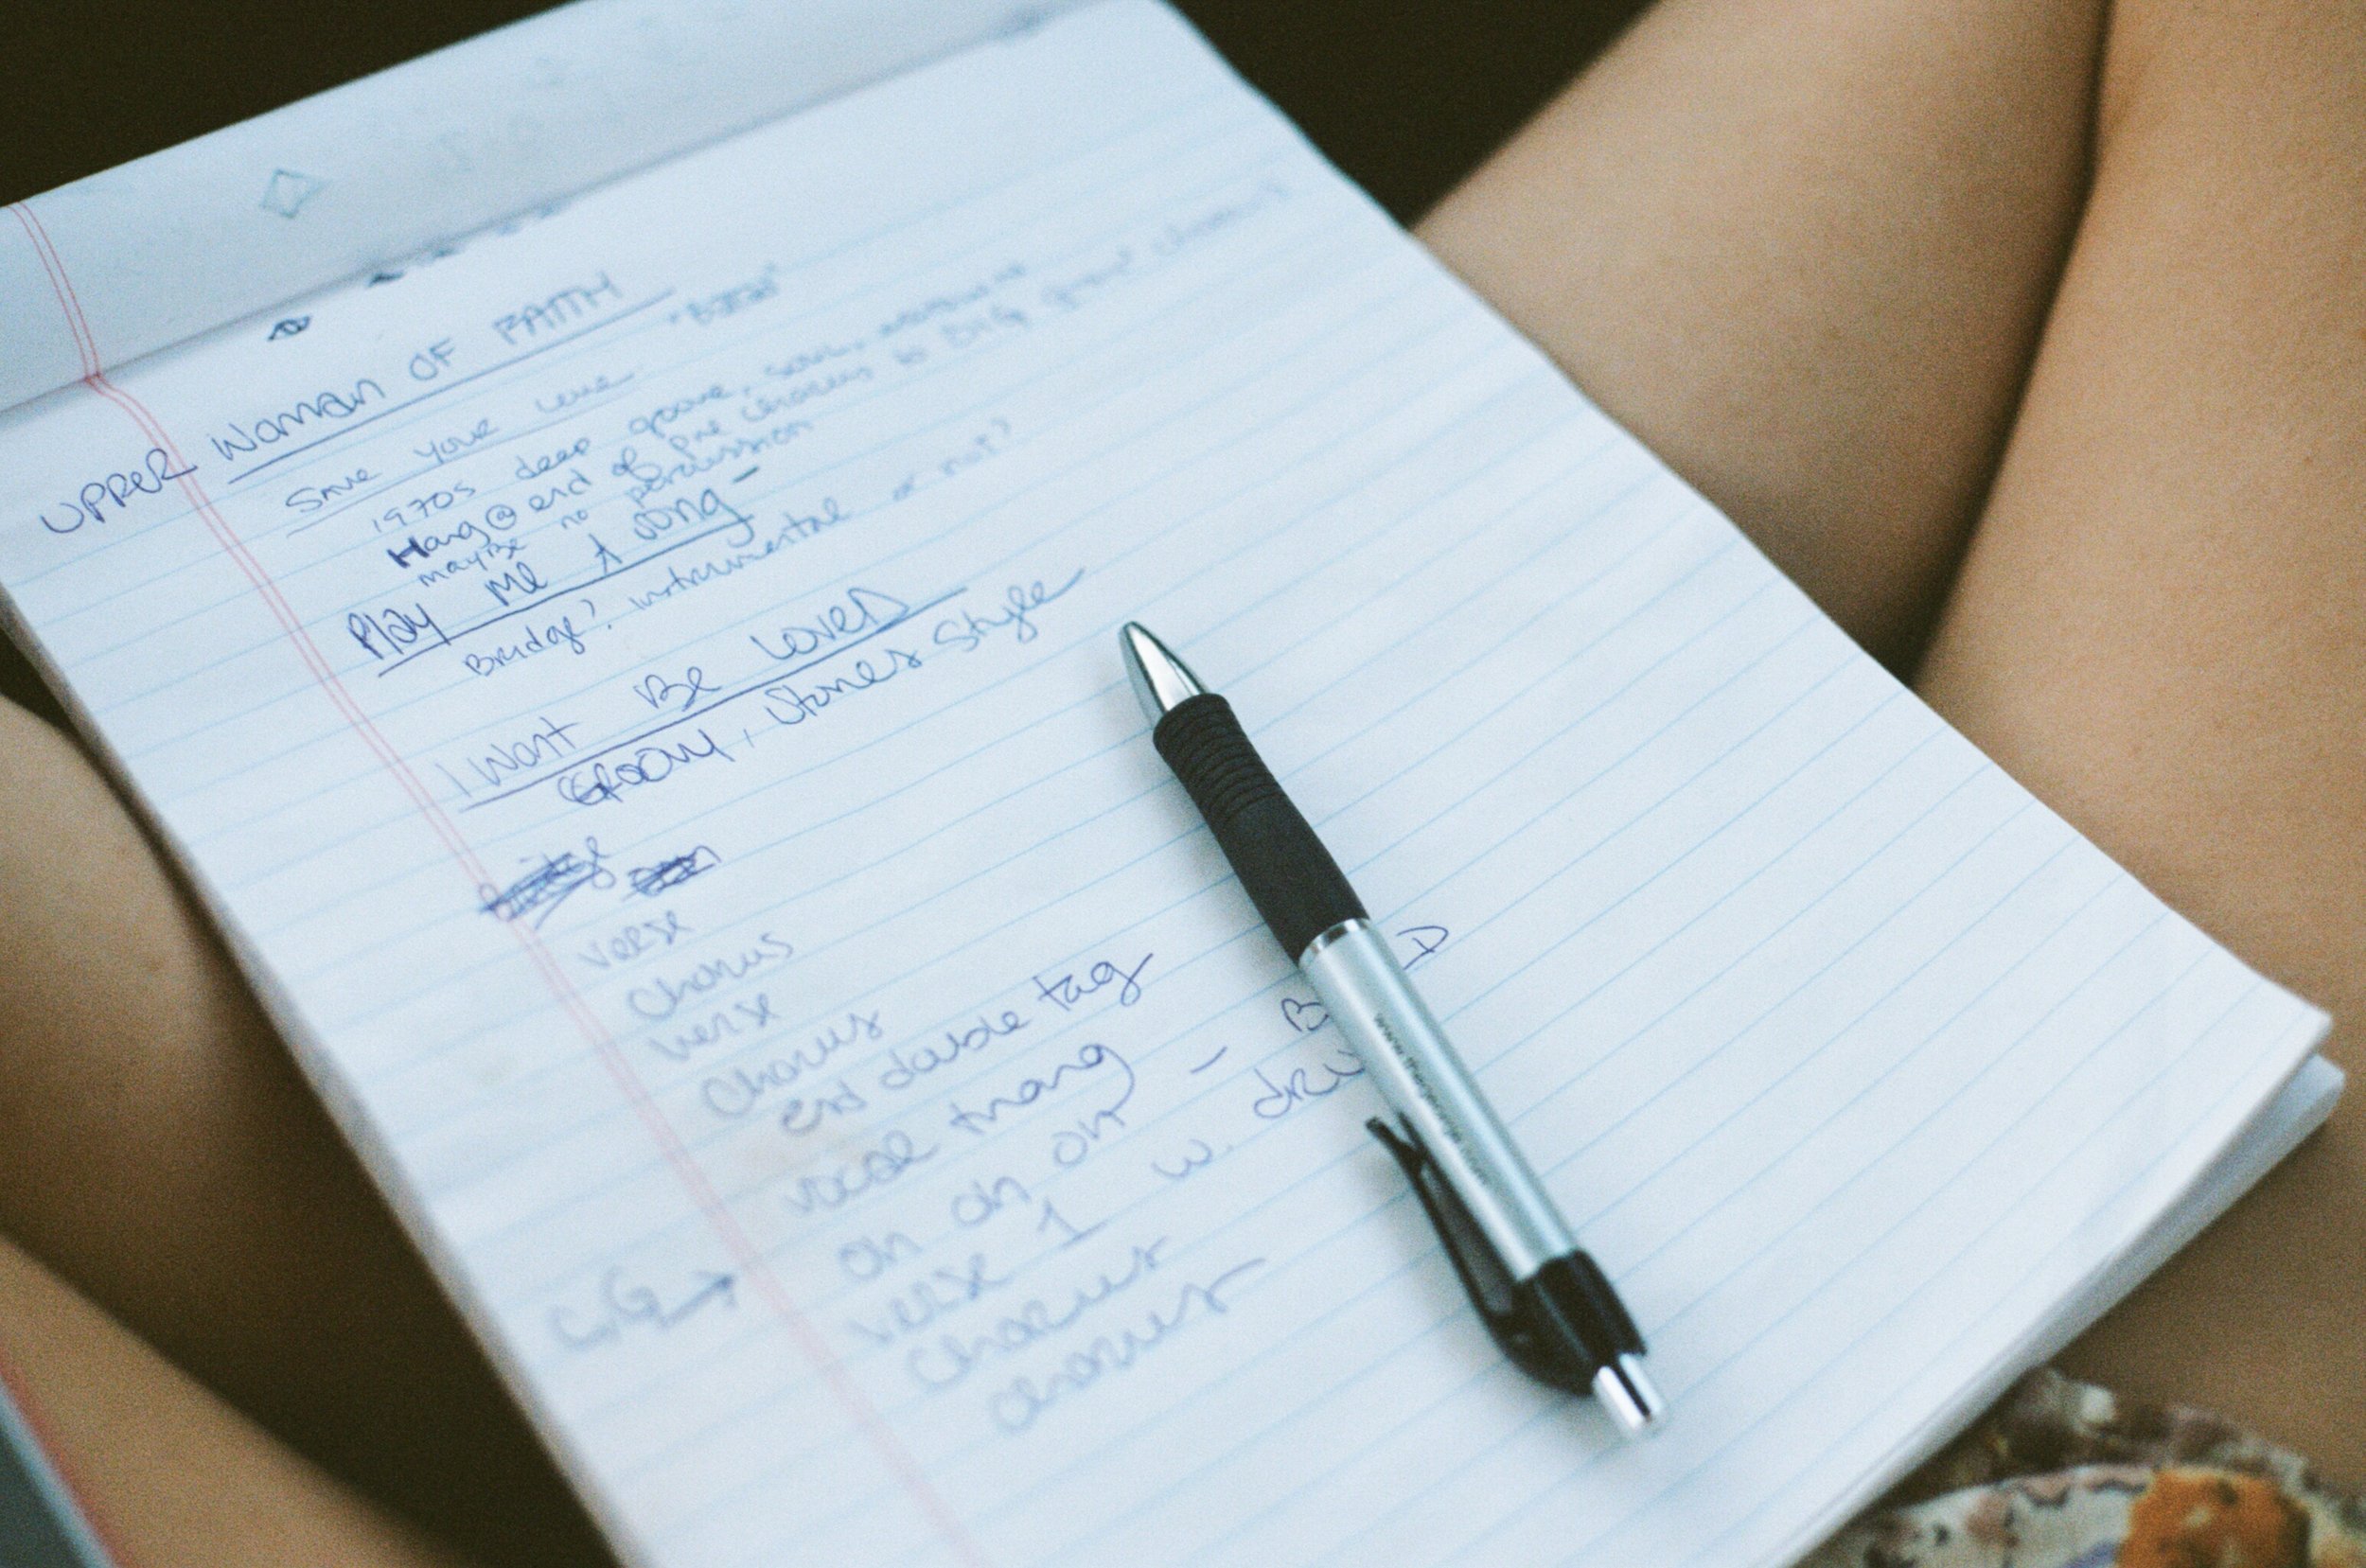 UPPER WOMAN OF FAITH
Save your love
1970s deep groove, soul,
Hang @ end of pre chorus to BIG chorus
maybe no percussion
Play Me A Song -
Bridge? instrumental or not?
I Want Be Loved
Groovy, Stones Style
verse
Chorus
verse
Chorus
end double tag
vocal thang - B D
oh oh oh
verse 1 w. dru
chorus
chorus